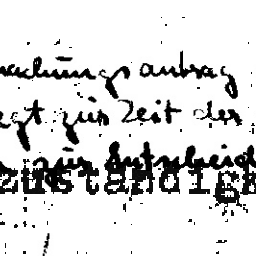 machungsantrag
egt zur Zeit der
zur Entscheid
zuständigk